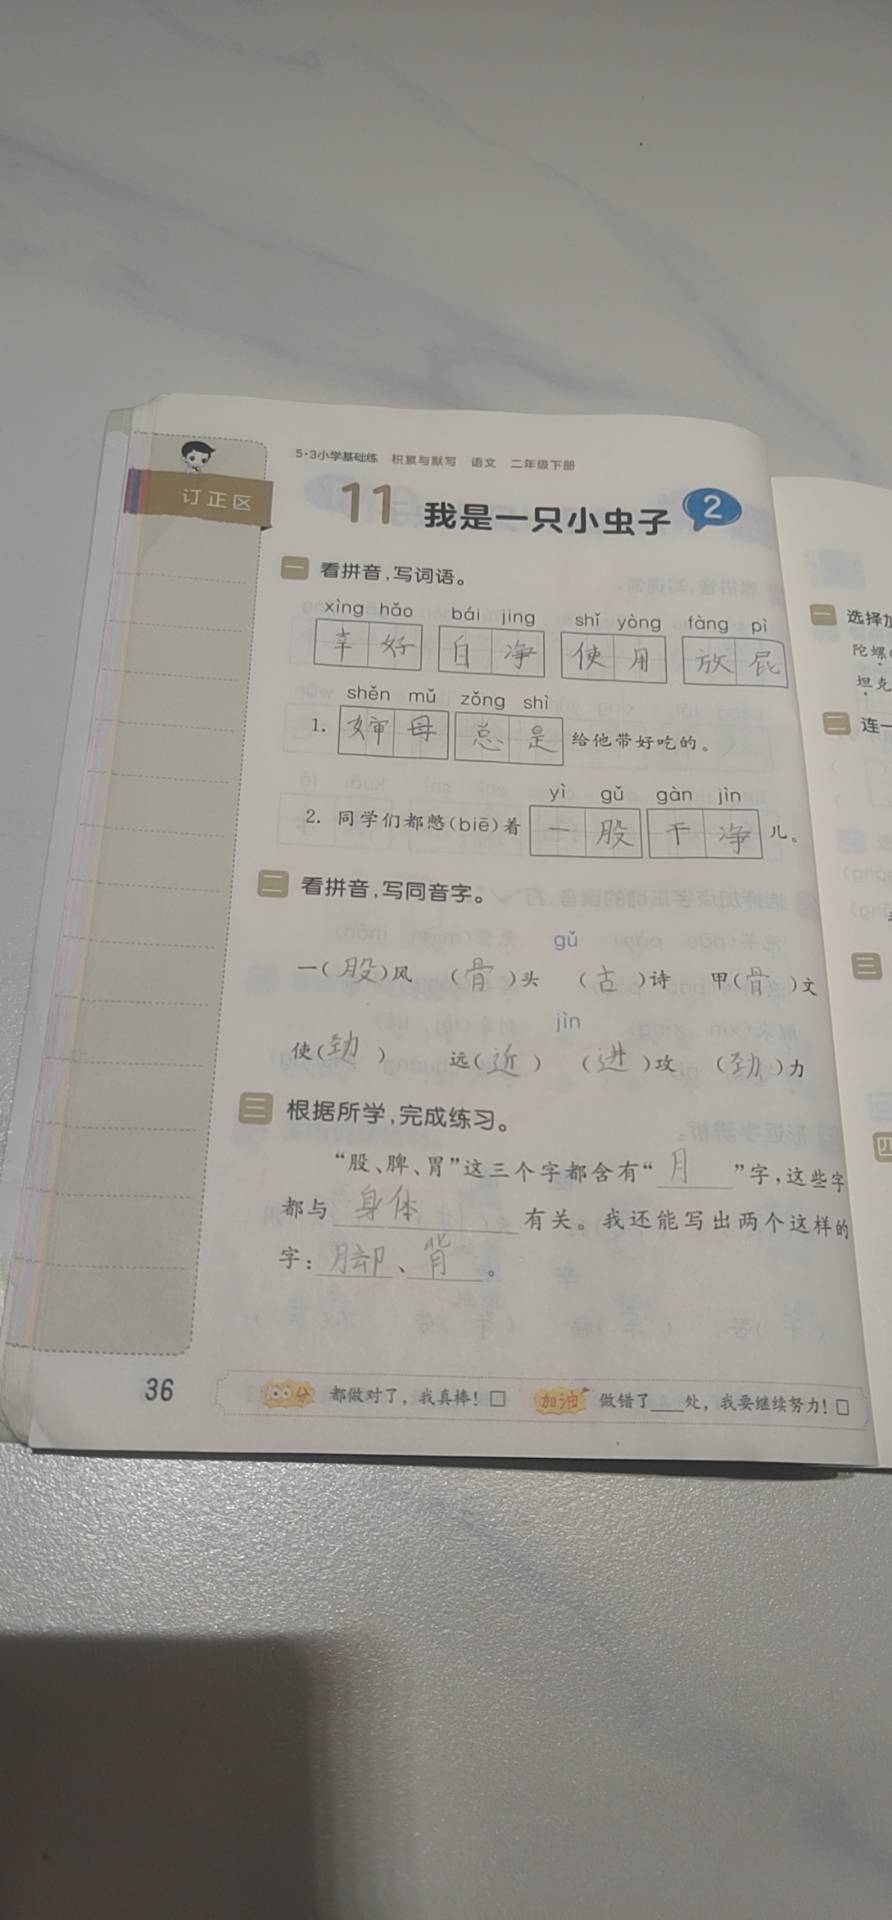 5·3小学基础练 积累与默写 语文 二年级下册
订正区
11 我是一只小虫子 2
一 看拼音,写词语。
xìng hǎo bái jing shǐ yòng fàng pì
幸好 自净 使用 放屁
shěn mǔ zǒng shì
1. 婶母 总是 给他带好吃的。
yì gǔ gàn jìn
2. 同学们都憋(biē)着 一股 干净 儿。
二 看拼音,写同音字。
gǔ
一(股)风 (骨)头 (古)诗 甲(骨)文
jìn
使(劲) 远(近) (进)攻 (劲)力
三 根据所学,完成练习。
“股、脾、胃”这三个字都含有“月”字,这些字
都与身体有关。我还能写出两个这样的
字:脚、背。
36
100分 都做对了,我真棒!□ 加油 做错了___处,我要继续努力!□
一 选择加
陀螺(
坦克
二 连一
三
四